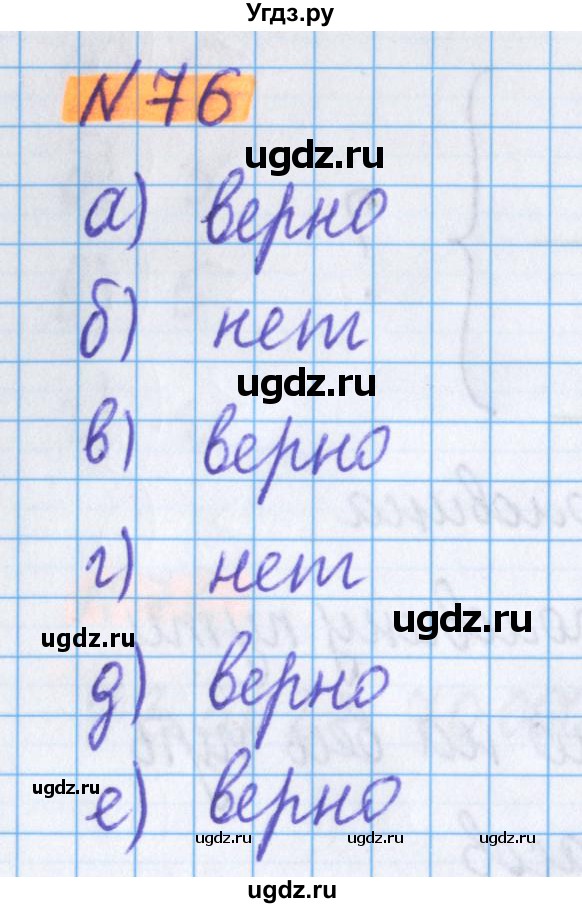 Угдз.ру
№ 76
ugdz.ru
а) верно
б) нет
ugdz.ru
в) верно
г) нет
ugdz.ru
ugdz.ru
д) верно
ugdz.ru
е) верно
ugdz.ru
ugdz.ru
ugdz.ru
ugdz.ru